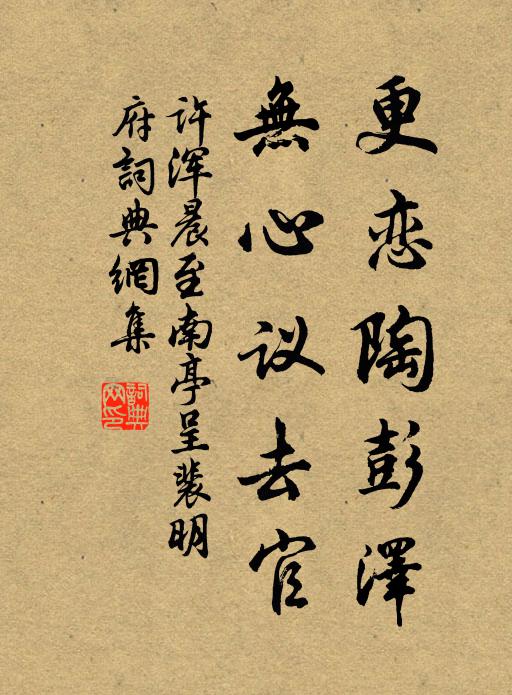 更恋陶彭澤
無心议去官
许浑晨至南亭呈裴明
府詞典網集
詞典網印